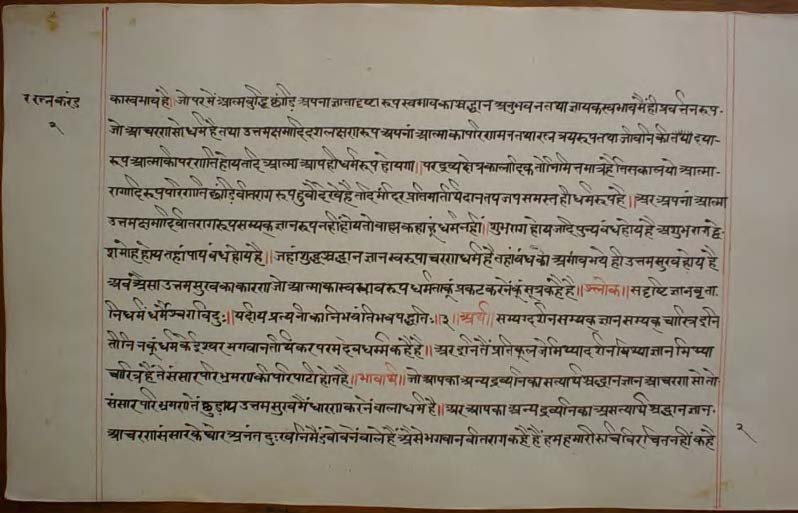 र रत्नकरंड
२
कास्वभाव है॥ जो पर में आत्मबुद्धि छांडि अपना ज्ञाता दृष्टा रूप स्वभाव का श्रद्धान अनुभव न तथा ज्ञायक स्वभाव मैं ही प्रवर्त्तन रूप
जो आचरण सो धर्म है तथा उत्तमक्षमादि दशलक्षण रूप अपनां आत्मा का परिणमन तथा रत्नत्रय रूप तथा जीवनि की दया
रूप आत्मा की परणति होय तदि आत्मा आप ही धर्म रूप होयगा॥ पर द्रव्य क्षेत्र कालादिक तो निमित्त मात्र है जिस काल यो आत्मा
रागादि रूप परिणति छांडि वीतराग रूप हुवो देखै है तदि मंदिर प्रतिमा तीर्थ दान तप जप समस्त ही धर्म रूप है॥ अर अपनां आत्मा
उत्तम क्षमादि वीतराग रूप सम्यक् ज्ञान रूप नहीं होय तो बाह्य कहां हूं धर्म नहीं॥ शुभ राग होय जदि पुन्य बंध होय है अशुभ राग द्वे
श मोह होय तहां पाप बंध होय है॥ जहां शुद्ध श्रद्धान ज्ञान स्वरूपाचरण धर्म है तहां बंध को अभाव भये ही उत्तम सुख होय है
अब ऐसा उत्तम सुख का कारण जो आत्मा का स्वभाव रूप धर्म ताकूं प्रकट करने कूं सूत्र कहै है॥ श्लोक॥ सद्दृष्टि ज्ञान वृत्ता
नि धर्मं धर्मेश्वरा विदुः॥ यदीय प्रत्यनीकानि भवंति भव पद्धतिः॥३॥ अर्थ॥ सम्यग्दर्शन सम्यक् ज्ञान सम्यक् चारित्र इनि
तीनिनकूं धर्म के ईश्वर भगवान तीर्थंकर परम देव धर्म कहै है॥ अर इनि तैं प्रतिकूल जे मिथ्यादर्शन मिथ्या ज्ञान मिथ्या
चारित्र हैं ते संसार परिभ्रमण की परिपाटी होत है॥ भावार्थ॥ जो आपका अन्य द्रव्यनि का सत्यार्थ श्रद्धान ज्ञान आचरण सो तो
संसार परिभ्रमण तें छुडाय उत्तम सुख मैं धारण करने वाला धर्म है॥ अर आपका अन्य द्रव्यनि का असत्यार्थ श्रद्धान ज्ञान
आचरण संसार के घोर अनंत दुःखनि मैं डबोवने वाले हैं ऐसे भगवान वीतराग कहै हैं हम हमारी रुचि विरचित नहीं कहै
२